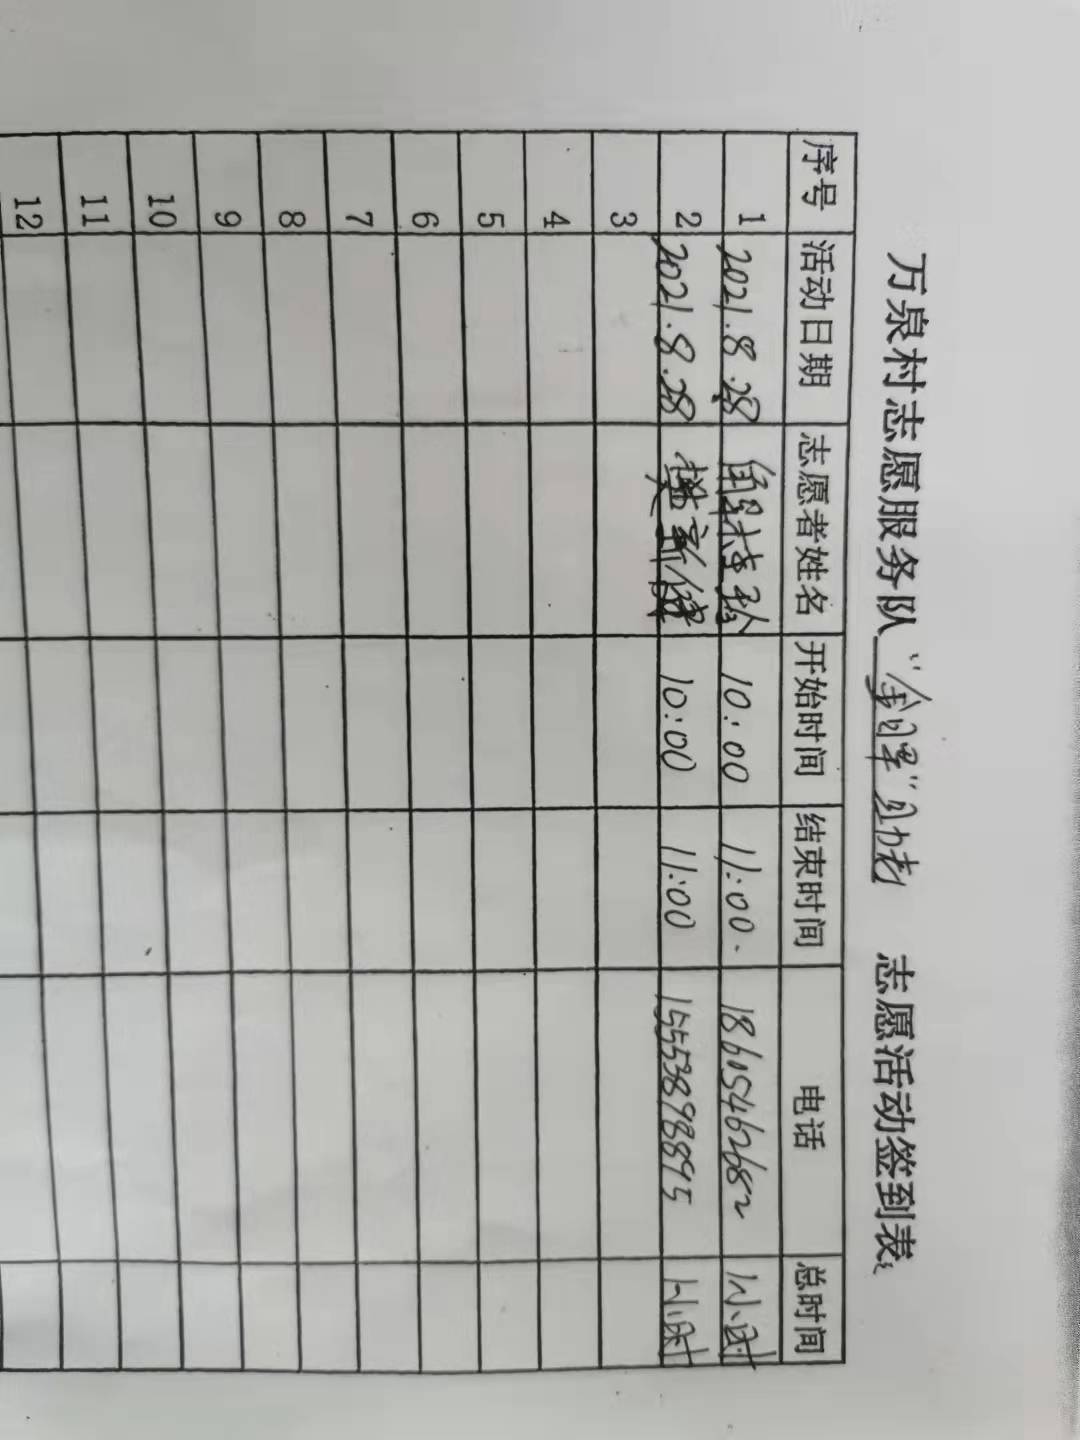 万泉村志愿服务队 "金晖"助老 志愿活动签到表
序号 活动日期 志愿者姓名 开始时间 结束时间 电话 总时间
1 2021.8.28 10:00 11:00. 18605462682 1小时
2 2021.8.28 樊新健 10:00 11:00 15553898895 1小时
3
4
5
6
7
8
9
10
11
12